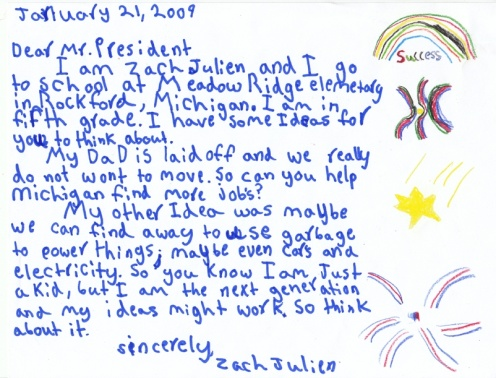 January 21, 2009
Success
Dear Mr. President
I am Zach Julien and I go
to school at Meadow Ridge elemetary
in Rockford, Michigan. I am in
fifth grade. I have some Ideas for
you to think about.
My DaD is laid off and we really
do not wont to move. So can you help
Michigan find more jobs?
My other Idea was maybe
we can find away to use garbage
to power things; maybe even cars and
electricity. So you know I am Just
a kid, but I am the next generation
and my ideas might work. So think
about it.
sincerely,
Zach Julien